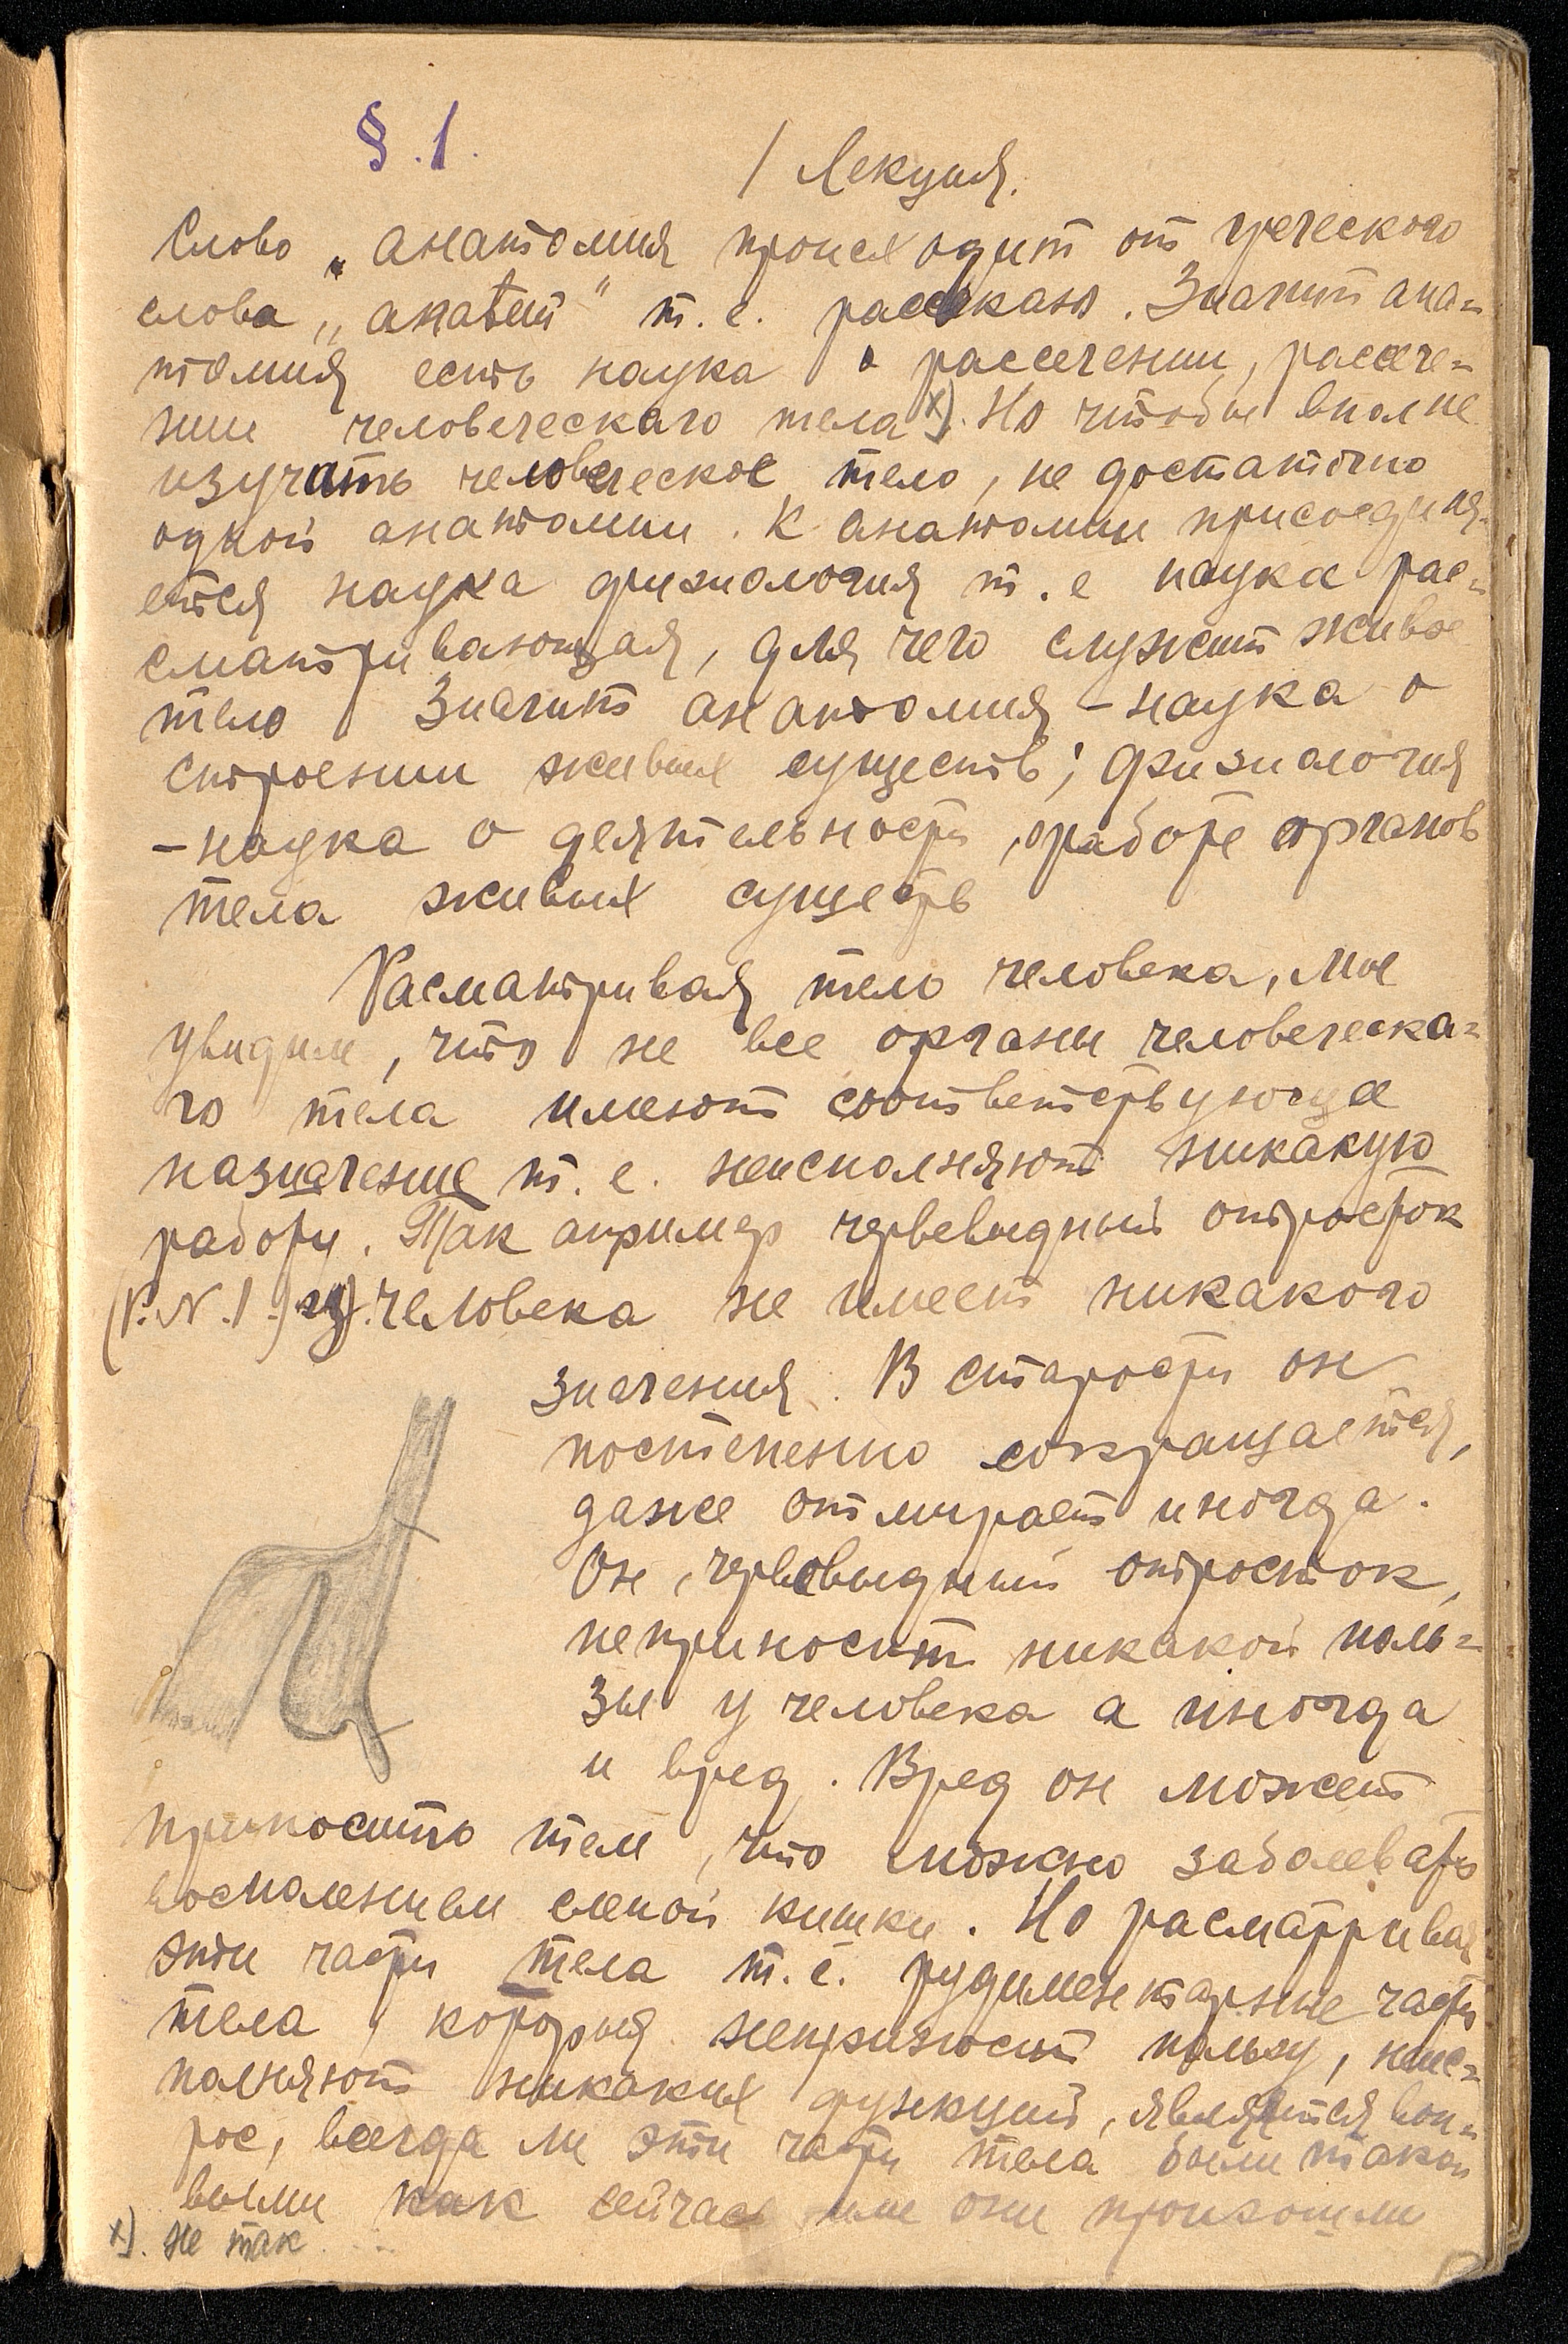 §.1.
1 Лекция.
Слово „анатомия происходит от греческого
слова „анатем" т.е. рассекаю. Значит ана=
томия есть наука о рассечении, рассече=
нии человеческаго тела х). Но чтобы вполне
изучать человеческое тело, не достаточно
одной анатомии. К анатомии присоединя=
ется наука физиология т.е наука рас=
сматривающая, для чего служит живое
тело Значит анатомия - наука о
строении живых существ; физиология
-наука о деятельности, о работе органов
тела живых существ
Расматривая тело человека, мы
увидим, что не все органы человеческа=
го тела имеют соответствующее
назначение т.е. неисполняют никакую
работу. Так апример червевидный отросток
(Р.N.1.) у человека не имеет никакого
значения. В старости он
постепенно сокращается,
даже отмирает иногда.
Он, червевидный отросток,
неприносит никакой поль=
зы у человека а иногда
и вред. Вред он может
приносить тем, что можно заболевать
воспалением слепой кишки. Но расматривая
эти части тела т.е. рудиментарные части
тела, которыя неприносит пользу, неис=
полняют никаких функций, является воп=
рос, всегда ли эти части тела были тако
выми как сейчас или они произошли
х). не так...